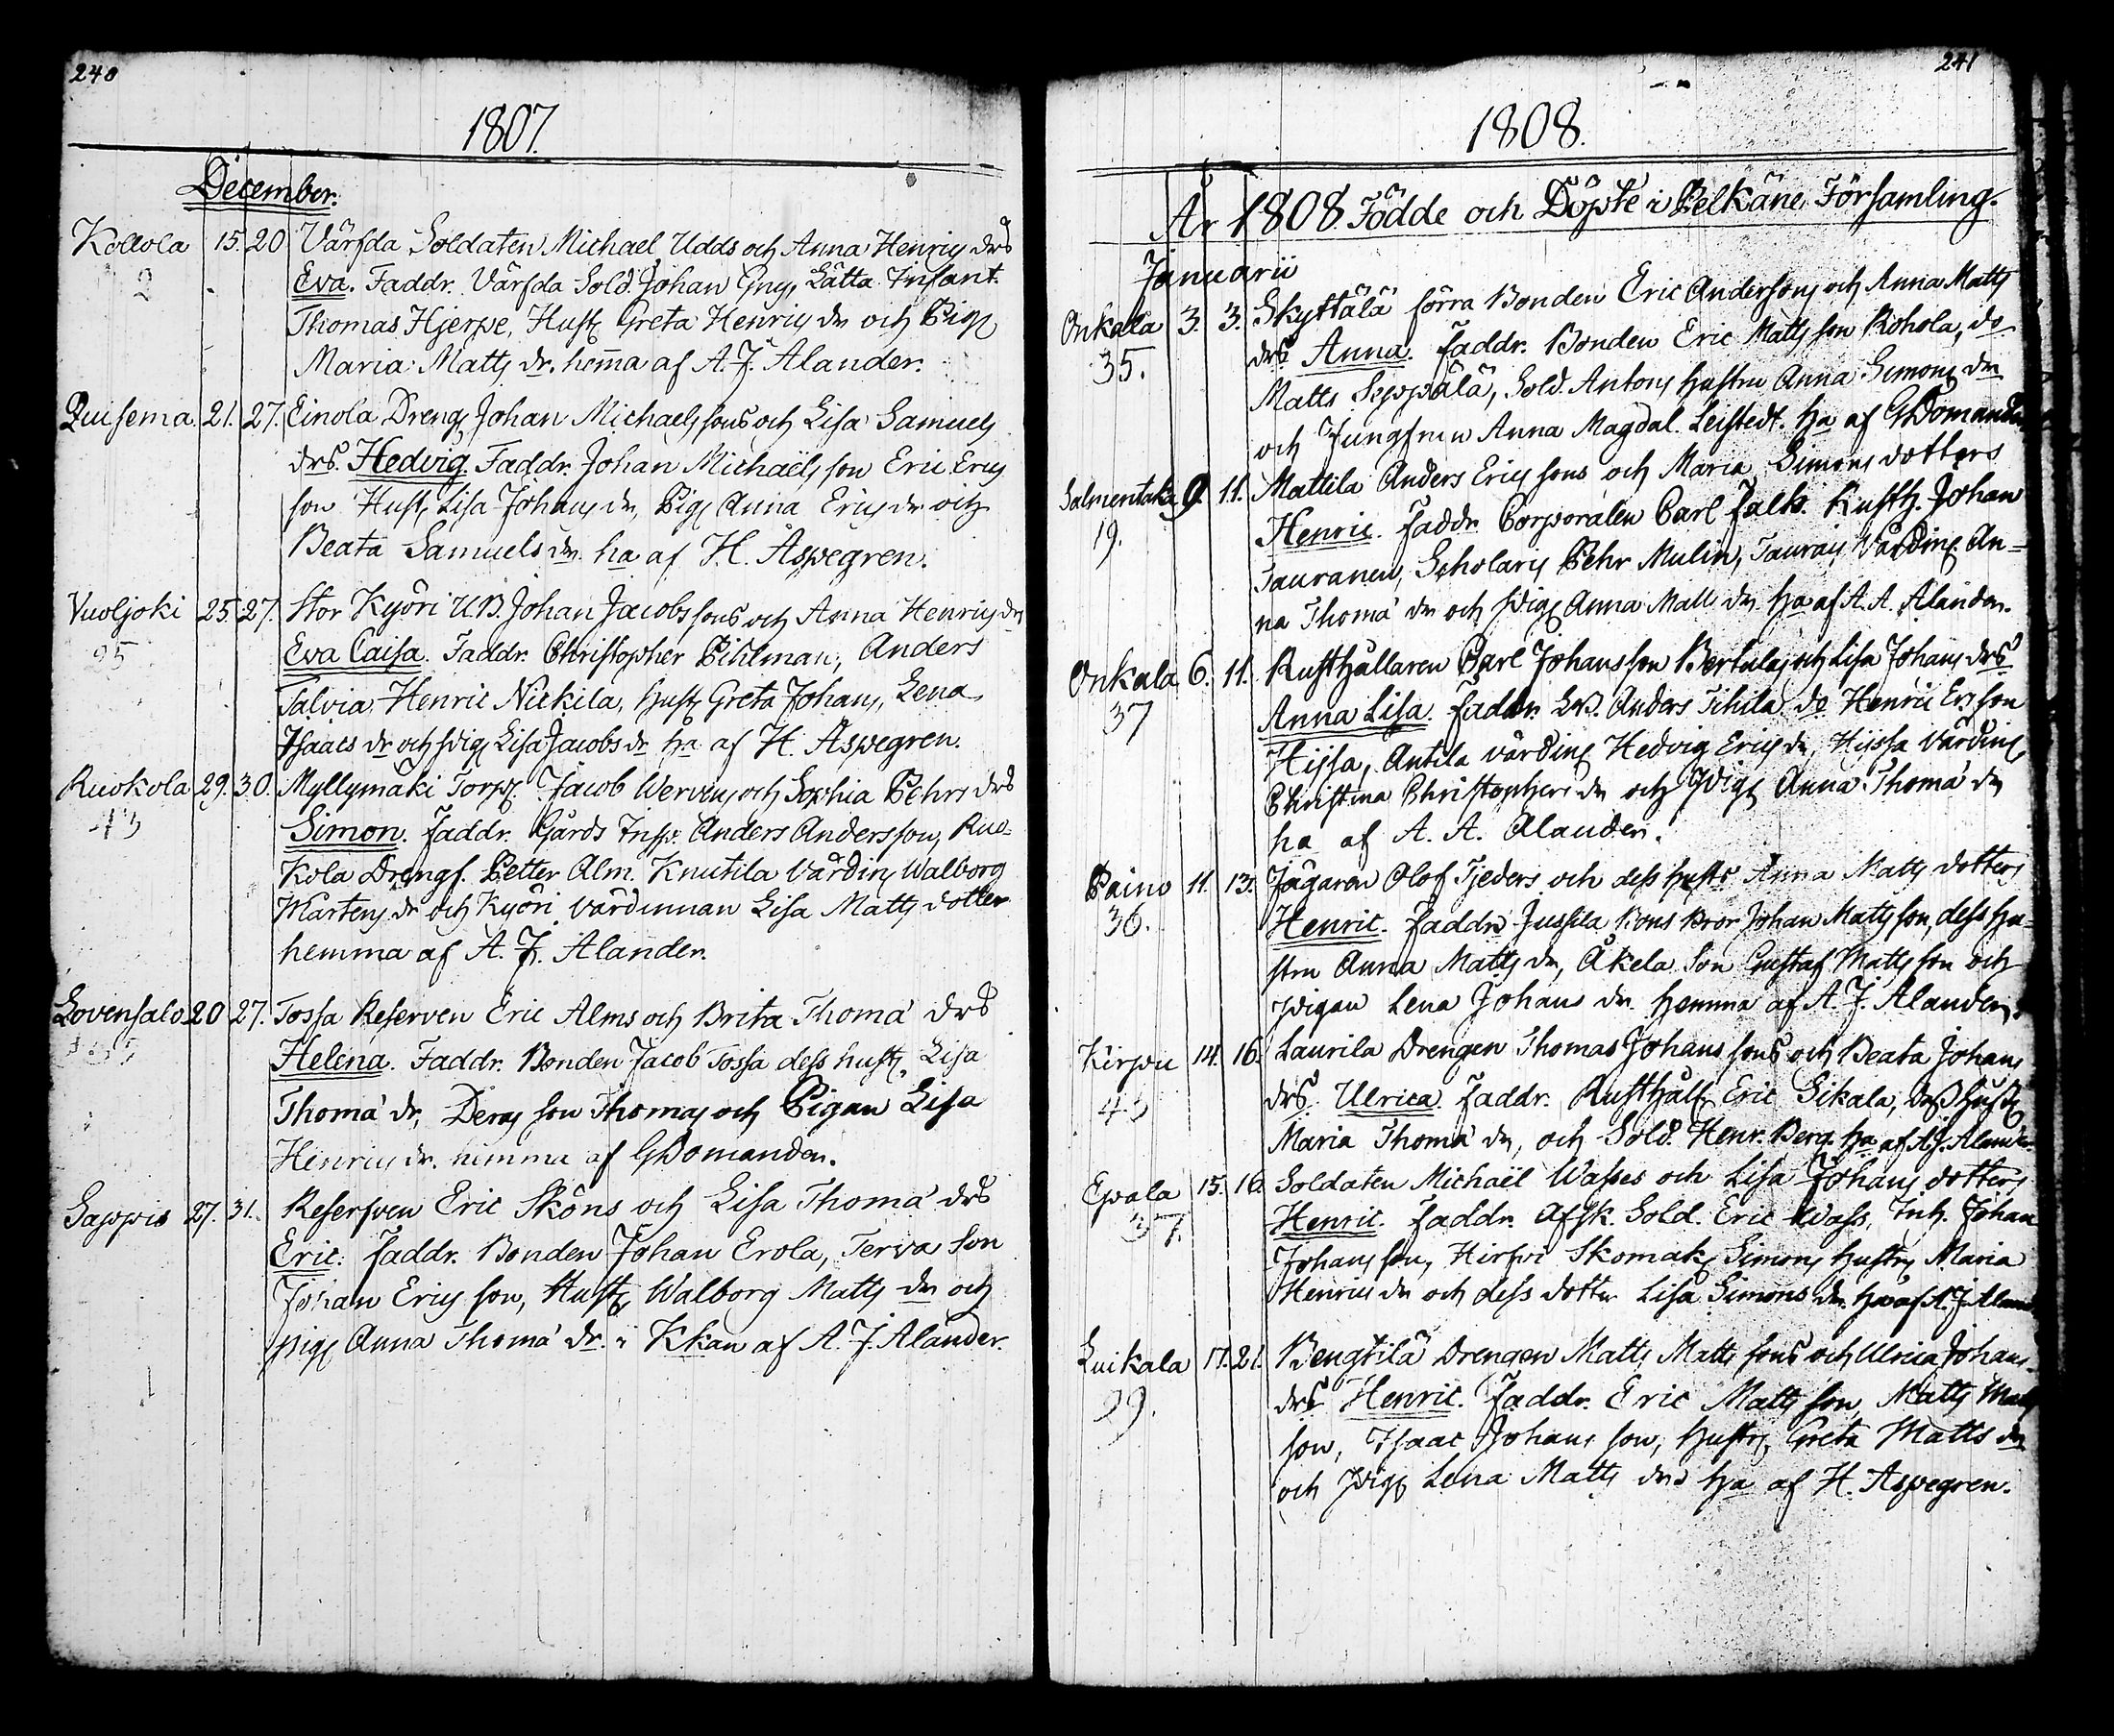 240
1807.
December.
Kollola 15. 20 Värfda Soldaten Michael Udds och Anna Henrics drs
2 Eva. Faddr. Värfda Sold. Johan Gny, Lätta Infant.
Thomas Hjerpe, Hust. Greta Henrics dr och Pig.
Maria Matts dr. hema af A. J. Alander.
Quisema 21. 27. Einola Dreng Johan Michaels sons och Lisa Samuels
drs. Hedvig. Faddr. Johan Michaëls son Eric Erics
son Hust. Lisa Johans dr, Pig. Anna Erics dr och
Beata Samuels dr. ha af H. Aspegren.
Vuoljoki 25. 27. Stor Kyöri U.B. Johan Jacobs sons och Anna Henrics dr
25 Eva Caisa. Faddr. Christopher Pihlman, Anders
Talvia, Henric Nickila, hust. Greta Johans, Lena
Isaacs dr och pig. Lisa Jacobs dr ha af H. Aspegren.
Ruokola 29. 30. Myllymäki Torp. Jacob Wervins och Sophia Pehrs drs
43 Simon. Faddr. Gårds Insp. Anders Andersson, Ruo-
kola Drengf. Petter Alm. Knutila Värdin. Walborg
Mårtens dr och Kyöri värdinnan Lisa Matts dotter
hemma af A. J. Alander.
Lovensalo 20 27. Tossa Reserven Eric Alms och Brita Thomä drs
Helena. Faddr. Bonden Jacob Tossa dess hust. Lisa
Thomä dr, Deras son Thomas och Pigan Lisa
Henrics dr. hemma af GDomander.
Sappis 27. 31. Reserven Eric Sköns och Lisa Thomä drs
Eric. Faddr. Bonden Johan Erola, Terva Son
Johan Erics son, Hust. Walborg Matts dr och
pig. Anna Thomä dr. i Kkan af A. J. Alander.
241
1808.
Ar 1808. Födde och Döpte i Pelkäne Församling.
Januarii
Onkala 3. 3. Skyttälä förra Bonden Eric Andersons och Anna Matts
35. drs. Anna. Faddr. Bonden Eric Matts son Rohola, do
Matts Seppälä, Sold. Antons hustru Anna Simons dr
och Jungfrun Anna Magdal. Leistedt. ha af GDomander
Salmentaka 9. 11. Mattila Anders Erics sons och Maria Simons dotters
19. Henric. Faddr. Corporalen Carl Falk. Rusth. Johan
Tauranen, Scholaris Pehr Mulin, Taurais Värdin. An-
na Thomä dr och Pig. Anna Matts dr. ha af A. A. Alander.
Onkala 6. 11. Rusthållaren Carl Johansson Bertulas och Lisa Johans drs
37 Anna Lisa. Faddr. Anders Tihila do Henric Ers son
Hissa, Antila värdin. Hedvig Erics dr, Hissa Värdin.
Christina Christophers dr och Pig. Anna Thomä dr
ha af A. A. Alander.
Paino 11. 13. Jägaren Olof Tjeders och dess hustr Anna Matts dotters
36. Henric. Faddr. Jussila Bons Bror Johan Matts son, dess hu-
stru Anna Matts dr, Äkela Son Gustaf Matts son och
Pigan Lena Johans dr. hemma af A. J. Alander.
Kirpu 14. 16. Laurila Drengen Thomas Johans sons och Beata Johans
43 drs. Ulrica. Faddr. Rusthåll. Eric Sikala, dess hust.
Maria Thomä dr, och Sold. Henr. Berg. ha af A. J. Alander.
Epala 15. 16. Soldaten Michaël Wasses och Lisa Johans dotters
37. Henric. Faddr. Afsk. Sold. Eric Wass, Inh. Johan
Johans son, Hirsvi Skomak. Simons hustru Maria
Henrics dr och dess dotter Lisa Simons dr. ha af A. J. Aland
Luikala 17. 21. Bengtilä Drengen Matts Matts sons och Ulrica Johans
29. drs Henric. Faddr. Eric Matts son, Matts Matts
son, Isaac Johans son, hustru Greta Matts dr
och Pig. Lena Matts drs ha af H. Aspegren.